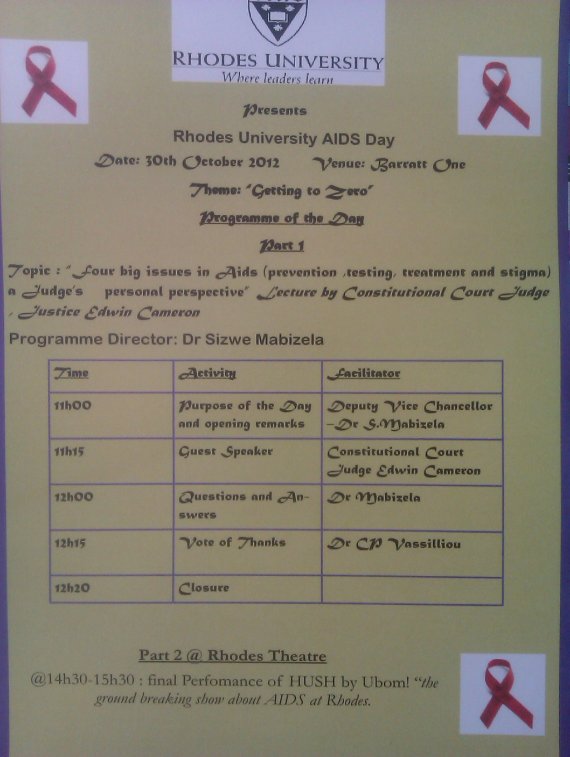 RHODES UNIVERSITY
Where leaders learn
Presents
Rhodes University AIDS Day
Date: 30th October 2012 Venue: Barratt One
Theme: "Getting to Zero"
Programme of the Day
Part 1
Topic : " Four big issues in Aids (prevention ,testing, treatment and stigma)
a Judge's personal perspective" Lecture by Constitutional Court Judge
, Justice Edwin Cameron
Programme Director: Dr Sizwe Mabizela
Time Activity Facilitator
11h00 Purpose of the Day Deputy Vice Chancellor
and opening remarks –Dr S.Mabizela
11h15 Guest Speaker Constitutional Court
Judge Edwin Cameron
12h00 Questions and An- Dr Mabizela
swers
12h15 Vote of Thanks Dr CP Vassilliou
12h20 Closure
Part 2 @ Rhodes Theatre
@14h30-15h30 : final Perfomance of HUSH by Ubom! "the
ground breaking show about AIDS at Rhodes.